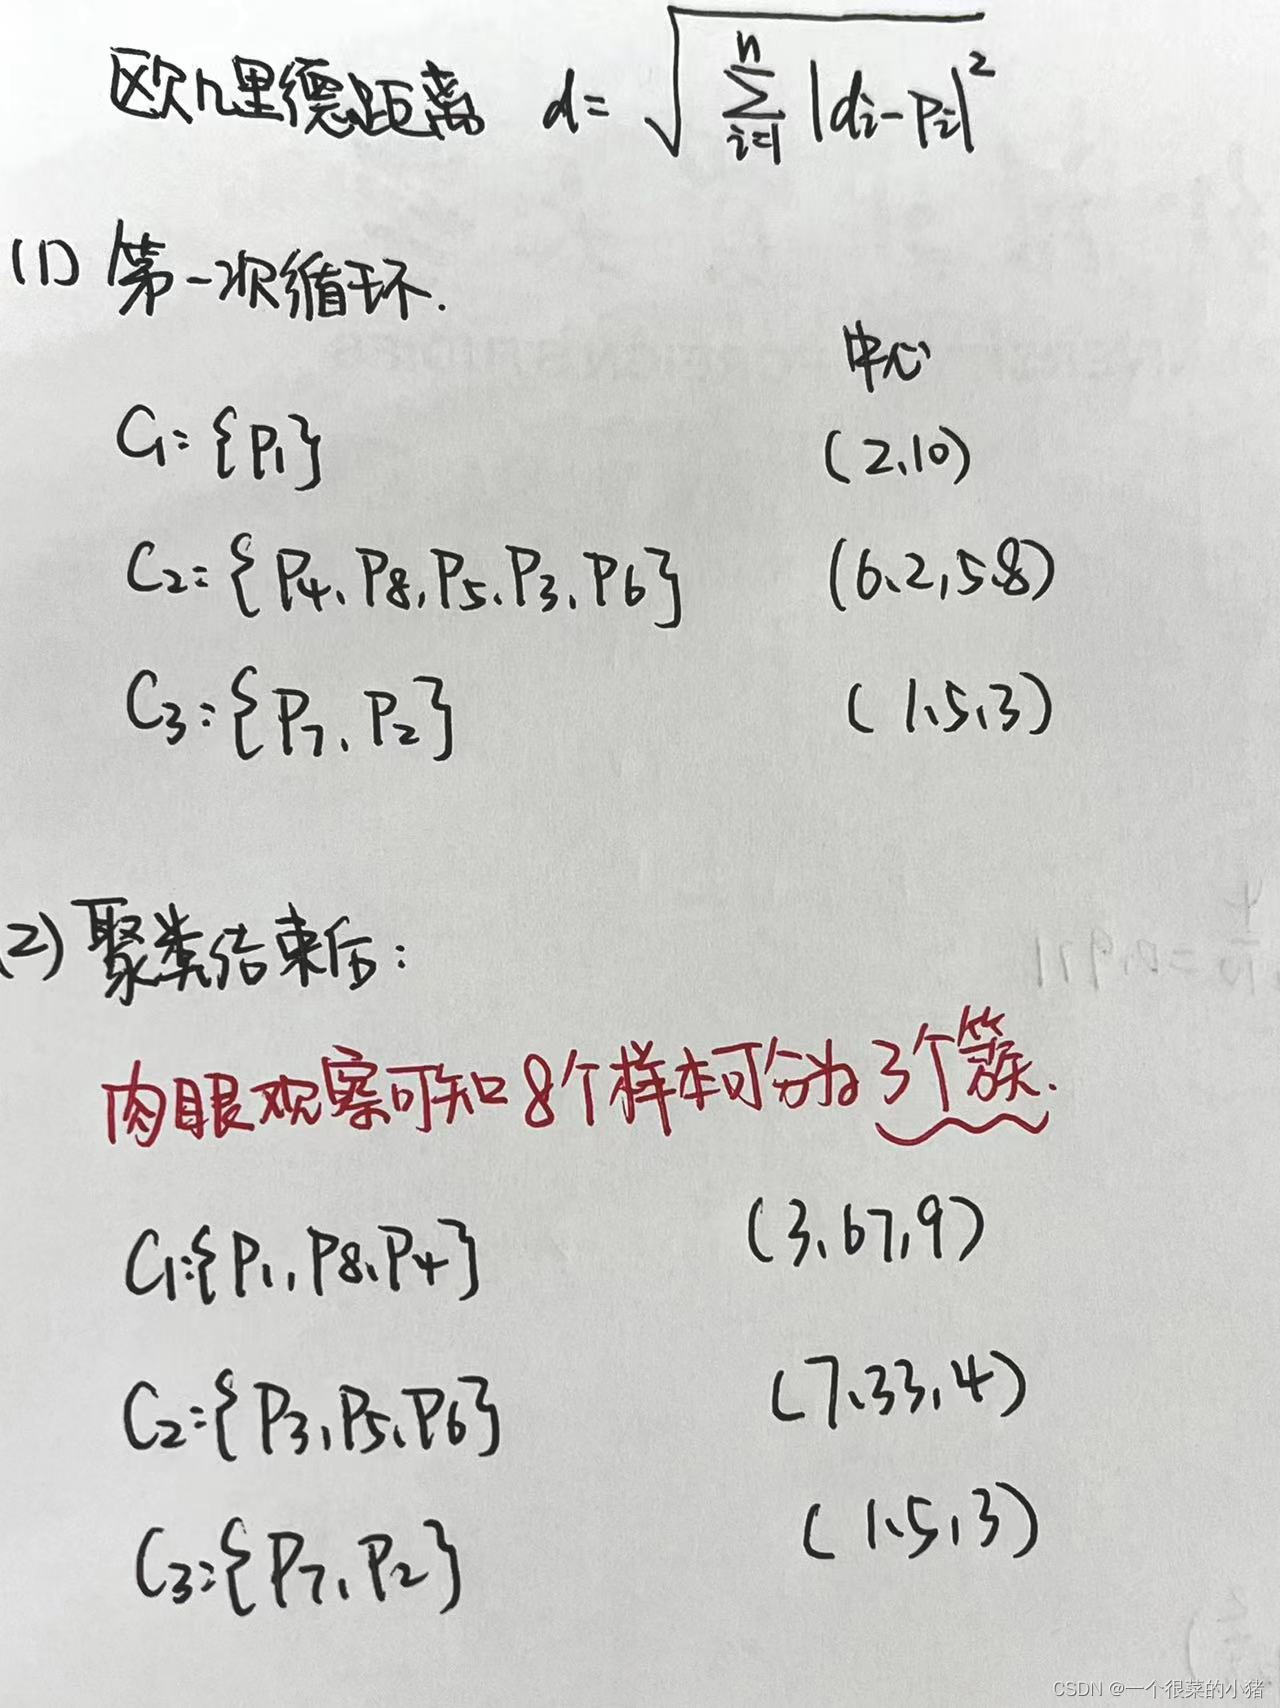 欧几里德距离 d=√∑ⁿᵢ₌₁|dᵢ-Pᵢ|²
(1) 第一次循环.
中心
C₁={P₁} (2,10)
C₂={P₄,P₈,P₅,P₃,P₆} (6.2,5.8)
C₃={P₇,P₂} (1.5,3)
(2) 聚类结束后:
肉眼观察可知8个样本可分为3个簇.
C₁:{P₁,P₈,P₄} (3.67,9)
C₂={P₃,P₅,P₆} (7.33,4)
C₃={P₇,P₂} (1.5,3)
CSDN @一个很菜的小猪